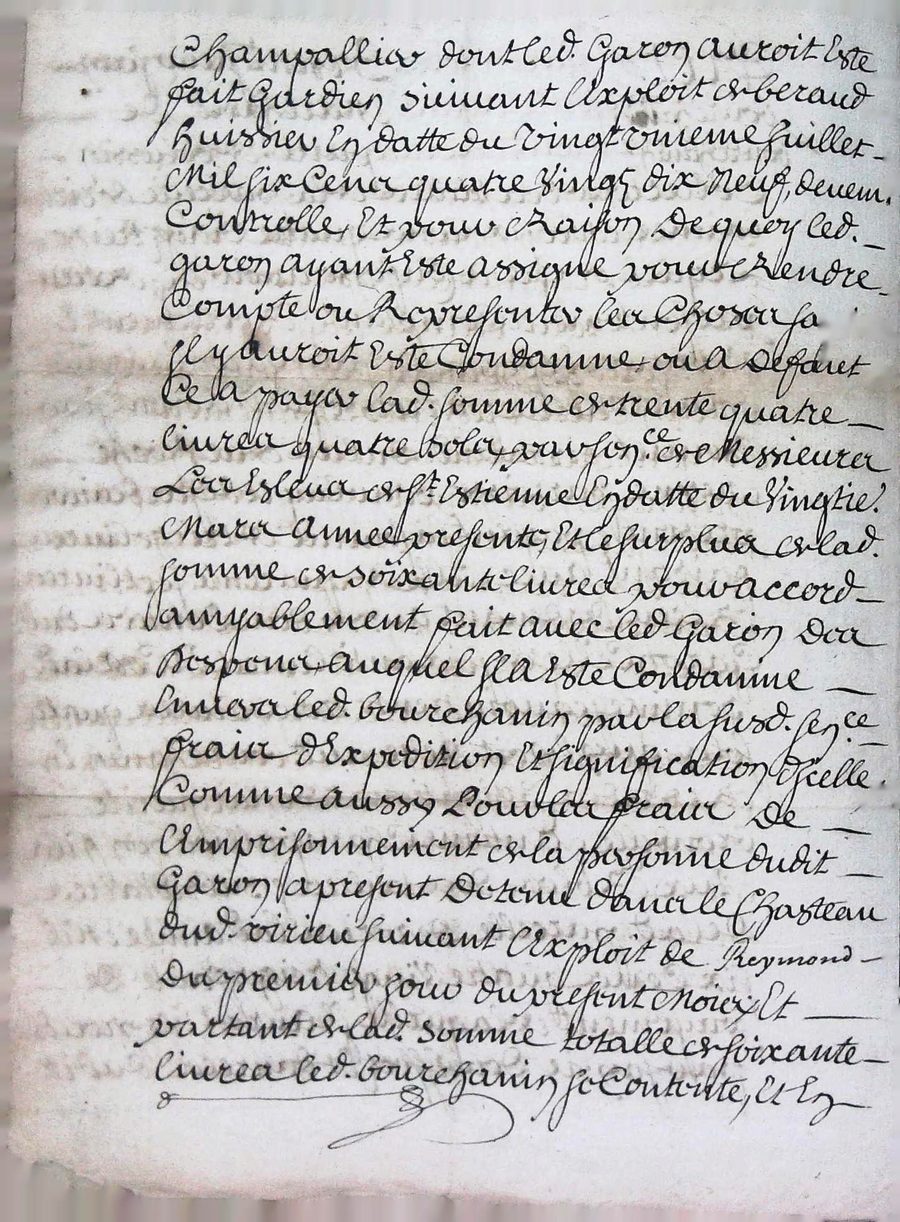 Champallier dont led. Garon auroit Este
fait Gardien suivant lExploit de beraud
huissier En datte du vingt unieme Juillet
Mil six Cens quatre vingt dix Neuf, deuem.
Controlle, Et pour Raison De quoy led.
garon ayant Este assigne pour Rendre
Compte ou Representer les Choses sa
Il y auroit Este Condamne, ou a Defaut
Ce a payer lad. somme de trente quatre
livres quatre sols, par sen.ce de Messieurs
Les Esleus de St. Estienne En datte du Vingtie.
Mars Annee presente, Et le surplus de lad.
somme de soixante livres pour accord
amyablement fait avec led. Garon des
Despens auquel Il a Este Condamne
Envers led. bourchanin par la susd. sen.ce
fraix dExpedition Et signification dIcelle.
Comme aussy Pour les fraix De
lEmprisonnement de la personne dudit
Garon a present Detenu dans le Chasteau
dud. virieu suivant lExploit de Reymond
du premier jour du present Mois, Et
partant de lad. somme totalle de soixante
livres led. bourchanin se Contente, Et En